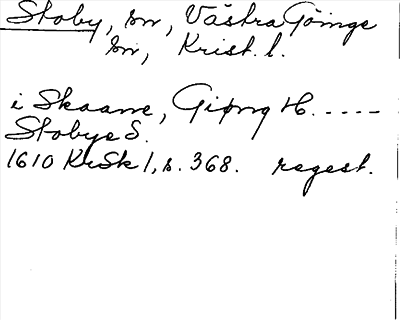 Stoby, sn, Västra Göinge
sn, Krist. l.
i Skaane, Giøng H. -----
Stobye S.
1610 KrSk 1, s. 368. regest.